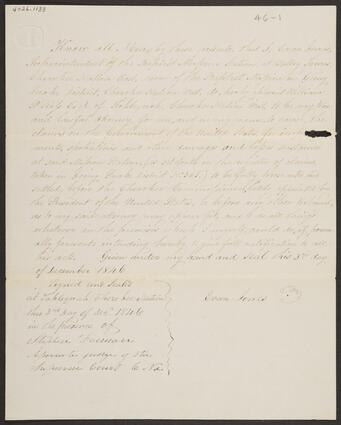 4026.1133
46-1
Know all Men by these presents that I, Evan Jones,
Superintendent of the Baptist Mission Station at Valley Towns,
Cherokee Nation East, now of the Baptist Mission in Going
Snake District, Cherokee Nation West, do hereby appoint William
P. Esqr. of Tahlequah, Cherokee Nation West to be my true
and lawful attorney for me, and in my name to the
claims on the Government of the United States for improve-
ments, spoliations and other damage and losses sustained
at said Mission Station, (as set forth in the register of claims
taken in Going Snake District No. ) to be fully presented and
settled before the Cherokee Commissioners, appointed by
the President of the United States, or before any other tribunal,
as to my said attorney may appear fit, and to do all things
whatever in the premises which I might, could or, if person-
ally present intending hereby to give full ratification to all
his acts. Given under my hand and Seal this 3d day
of December 1846
Signed and Sealed
at Tahlequah Cherokee Nation
this 3rd day of Decr. 1846
in the presence of
Evan Jones
Stephen Foreman
Associate judge of the
Supreme Court C. Na.